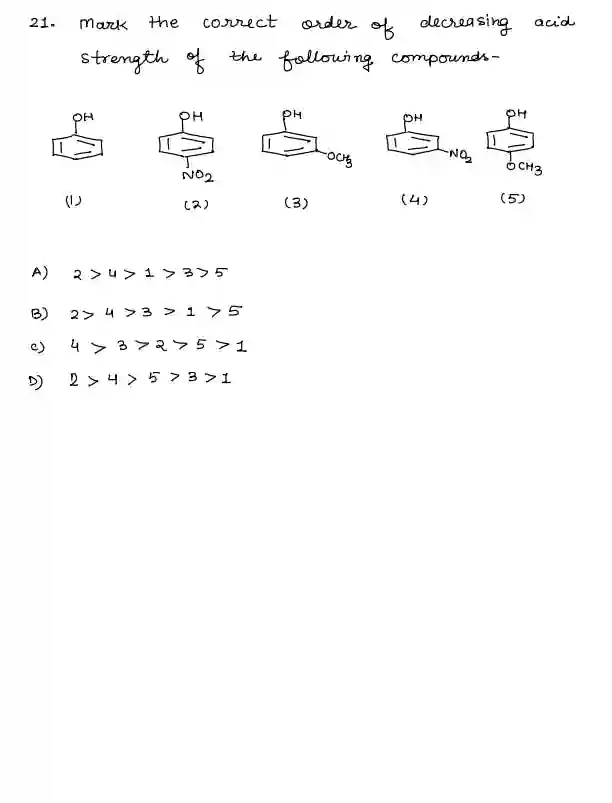 21. Mark the correct order of decreasing acid
strength of the following compounds-
OH OH OH OH OH
NO2 OCH3 NO2 OCH3
(1) (2) (3) (4) (5)
A) 2 > 4 > 1 > 3 > 5
B) 2 > 4 > 3 > 1 > 5
c) 4 > 3 > 2 > 5 > 1
D) 2 > 4 > 5 > 3 > 1